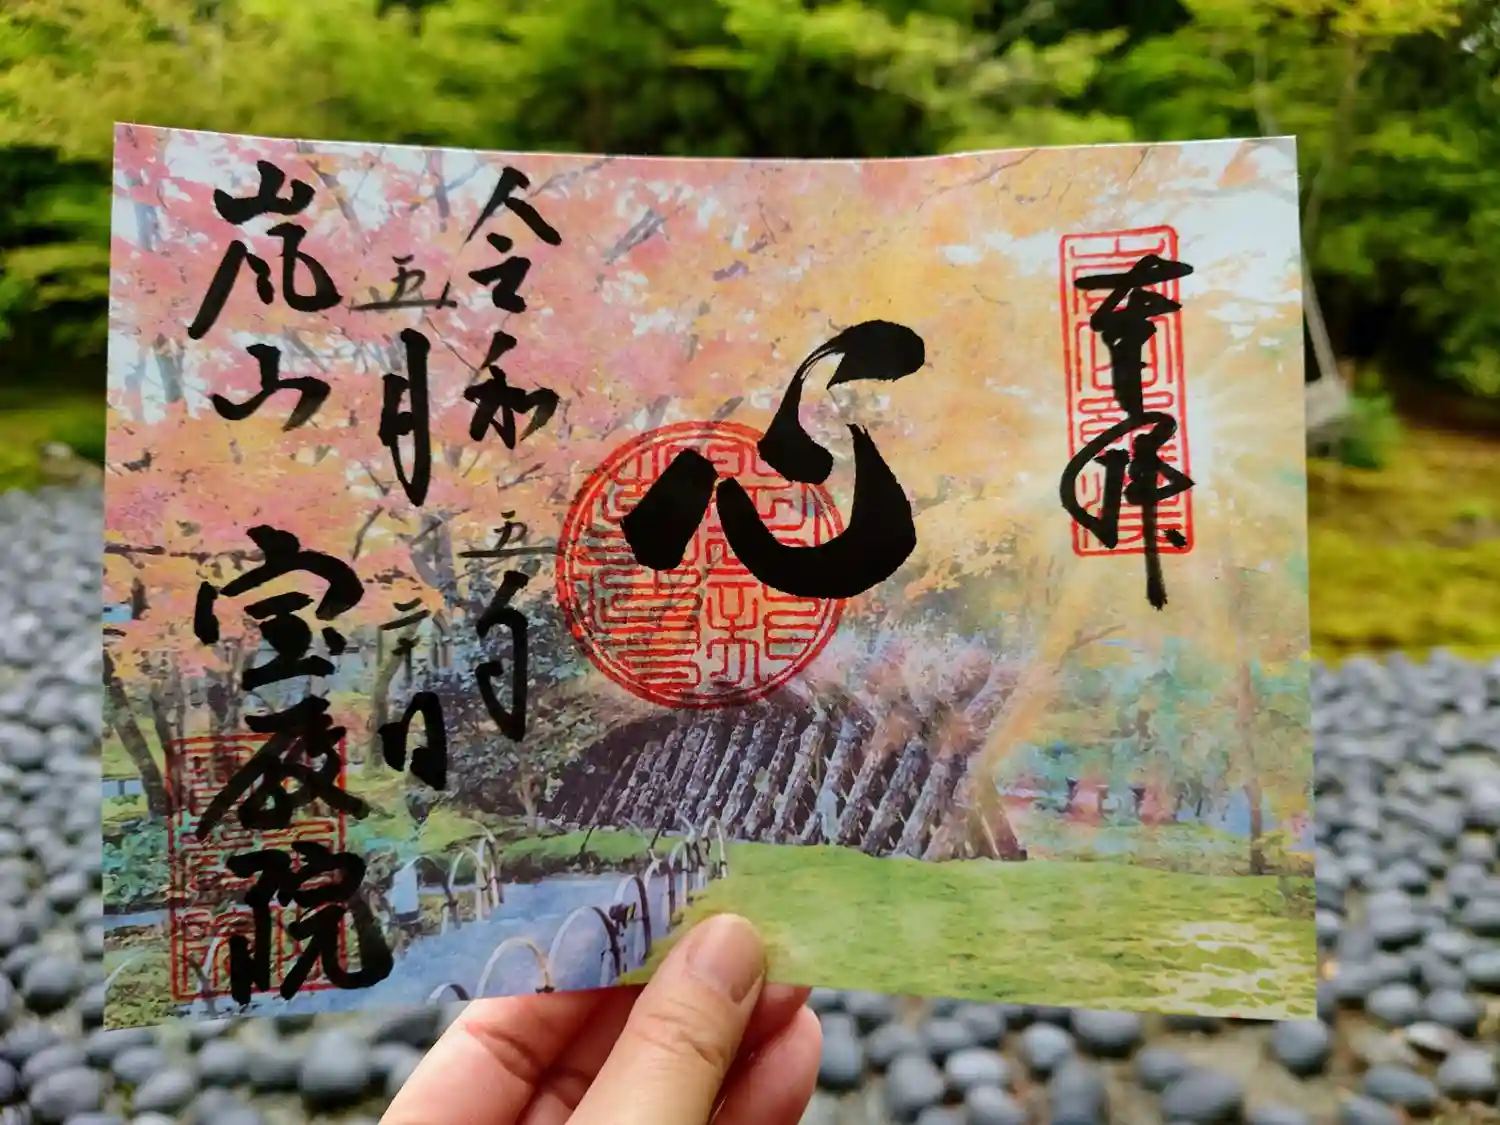 奉拝
心
令和五年
五月二十日
嵐山 宝厳院